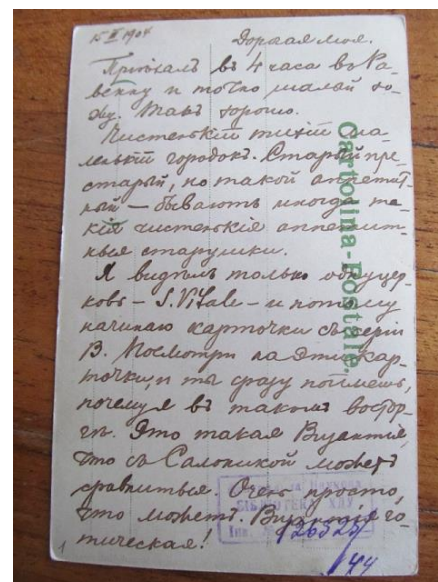 15 II 1904
Дорогая моя.
Пріѣхалъ въ 4 часа въ Ра-
венну и точно шалый хо-
жу. Такъ хорошо.
Чистенькій тихій ма-
ленькій городокъ. Старый пре-
старый, но такой аппетит-
ный — бываютъ иногда та-
кія чистенькія аппетит-
ныя старушки.
Я видѣлъ только одну цер-
ковь — S. Vitale — и потому
начинаю карточки съ серіи
В. Посмотри на эти кар-
точки, и ты сразу поймешь,
почему я въ такомъ востор-
гѣ. Это такая Византія,
что съ Салоникой можетъ
сравниться. Очень просто,
что можетъ. Византія го-
тическая!
Cartolina-Postale.
БІБЛІОТЕКА
Інв.
126525
144